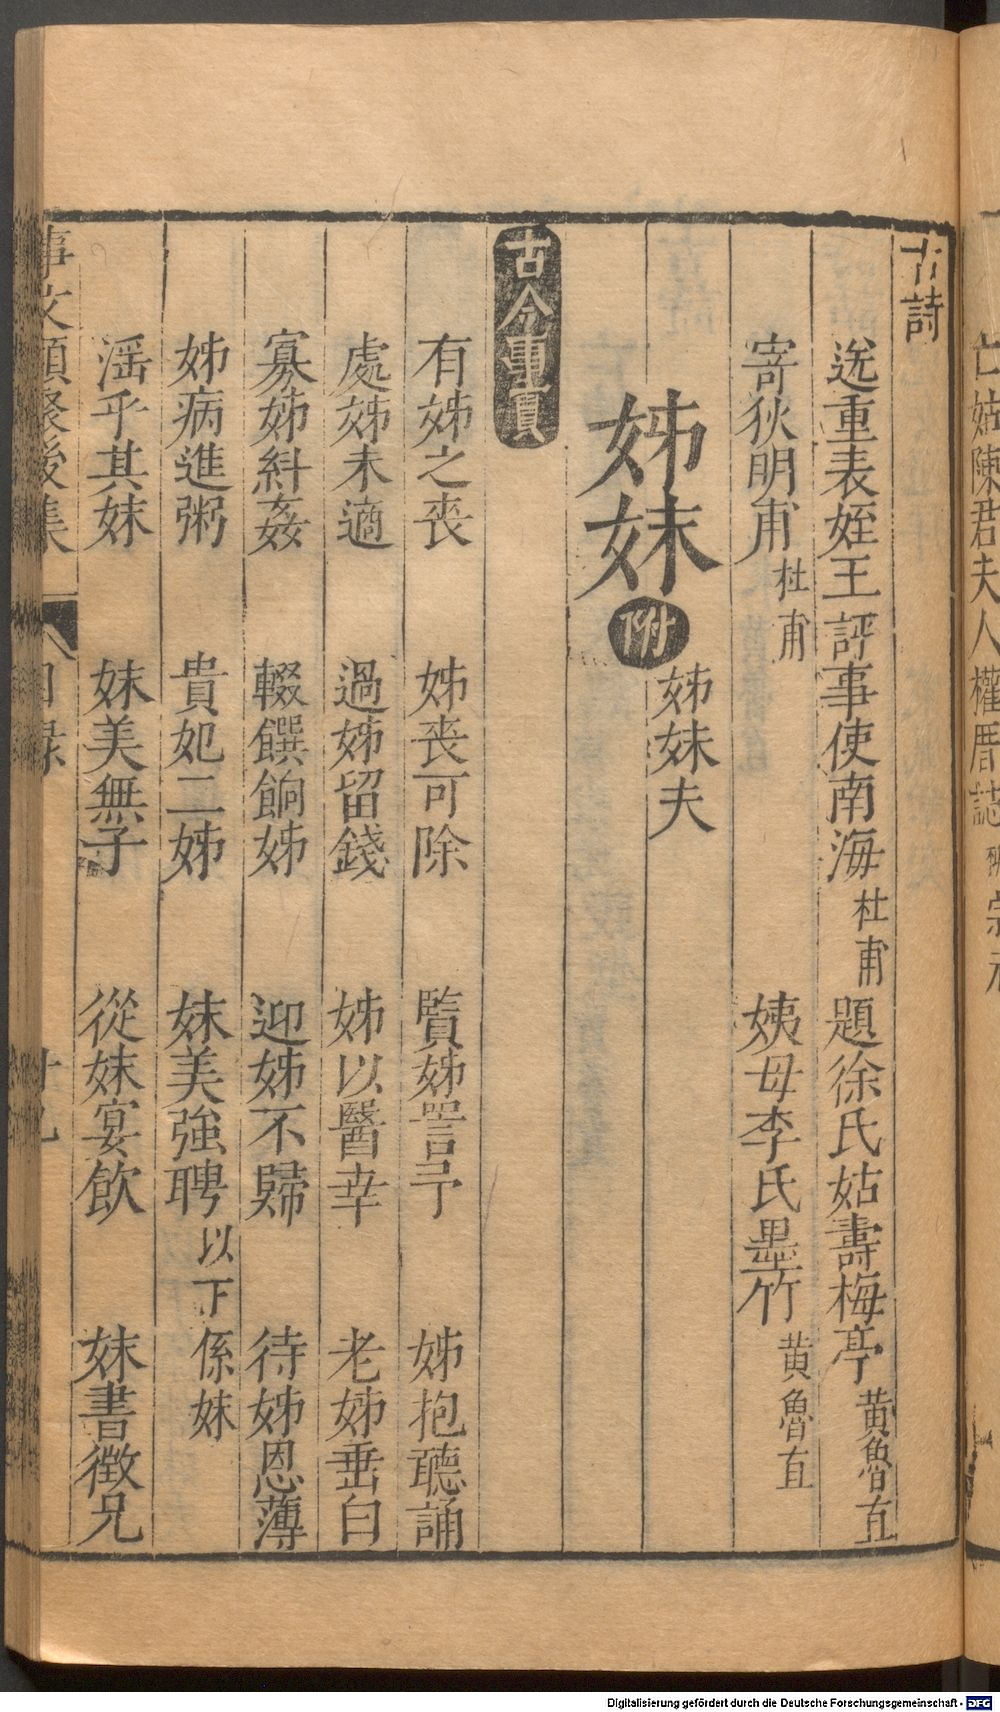 亡姊陳君夫人權厝誌
宗元
古詩
送重表姪王評事使南海 杜甫 題徐氏姑壽梅亭 黃魯直
寄狄明甫 杜甫 姨母李氏墨竹 黃魯直
姊妹夫
姊妹 附
古今事實
有姊之喪 姊喪可除 賢姊詈予 姊抱聽誦
處姊未適 過姊留錢 姊以醫幸 老姊垂白
寡姊糾姦 輟饌餉姊 迎姊不歸 待姊恩薄
姊病進粥 貴妃二姊 妹美強聘 以下係妹
滛乎其妹 妹美無子 從妹宴飲 妹書徴兄
事文類聚後集 目録
Digitalisierung gefördert durch die Deutsche Forschungsgemeinschaft - DFG